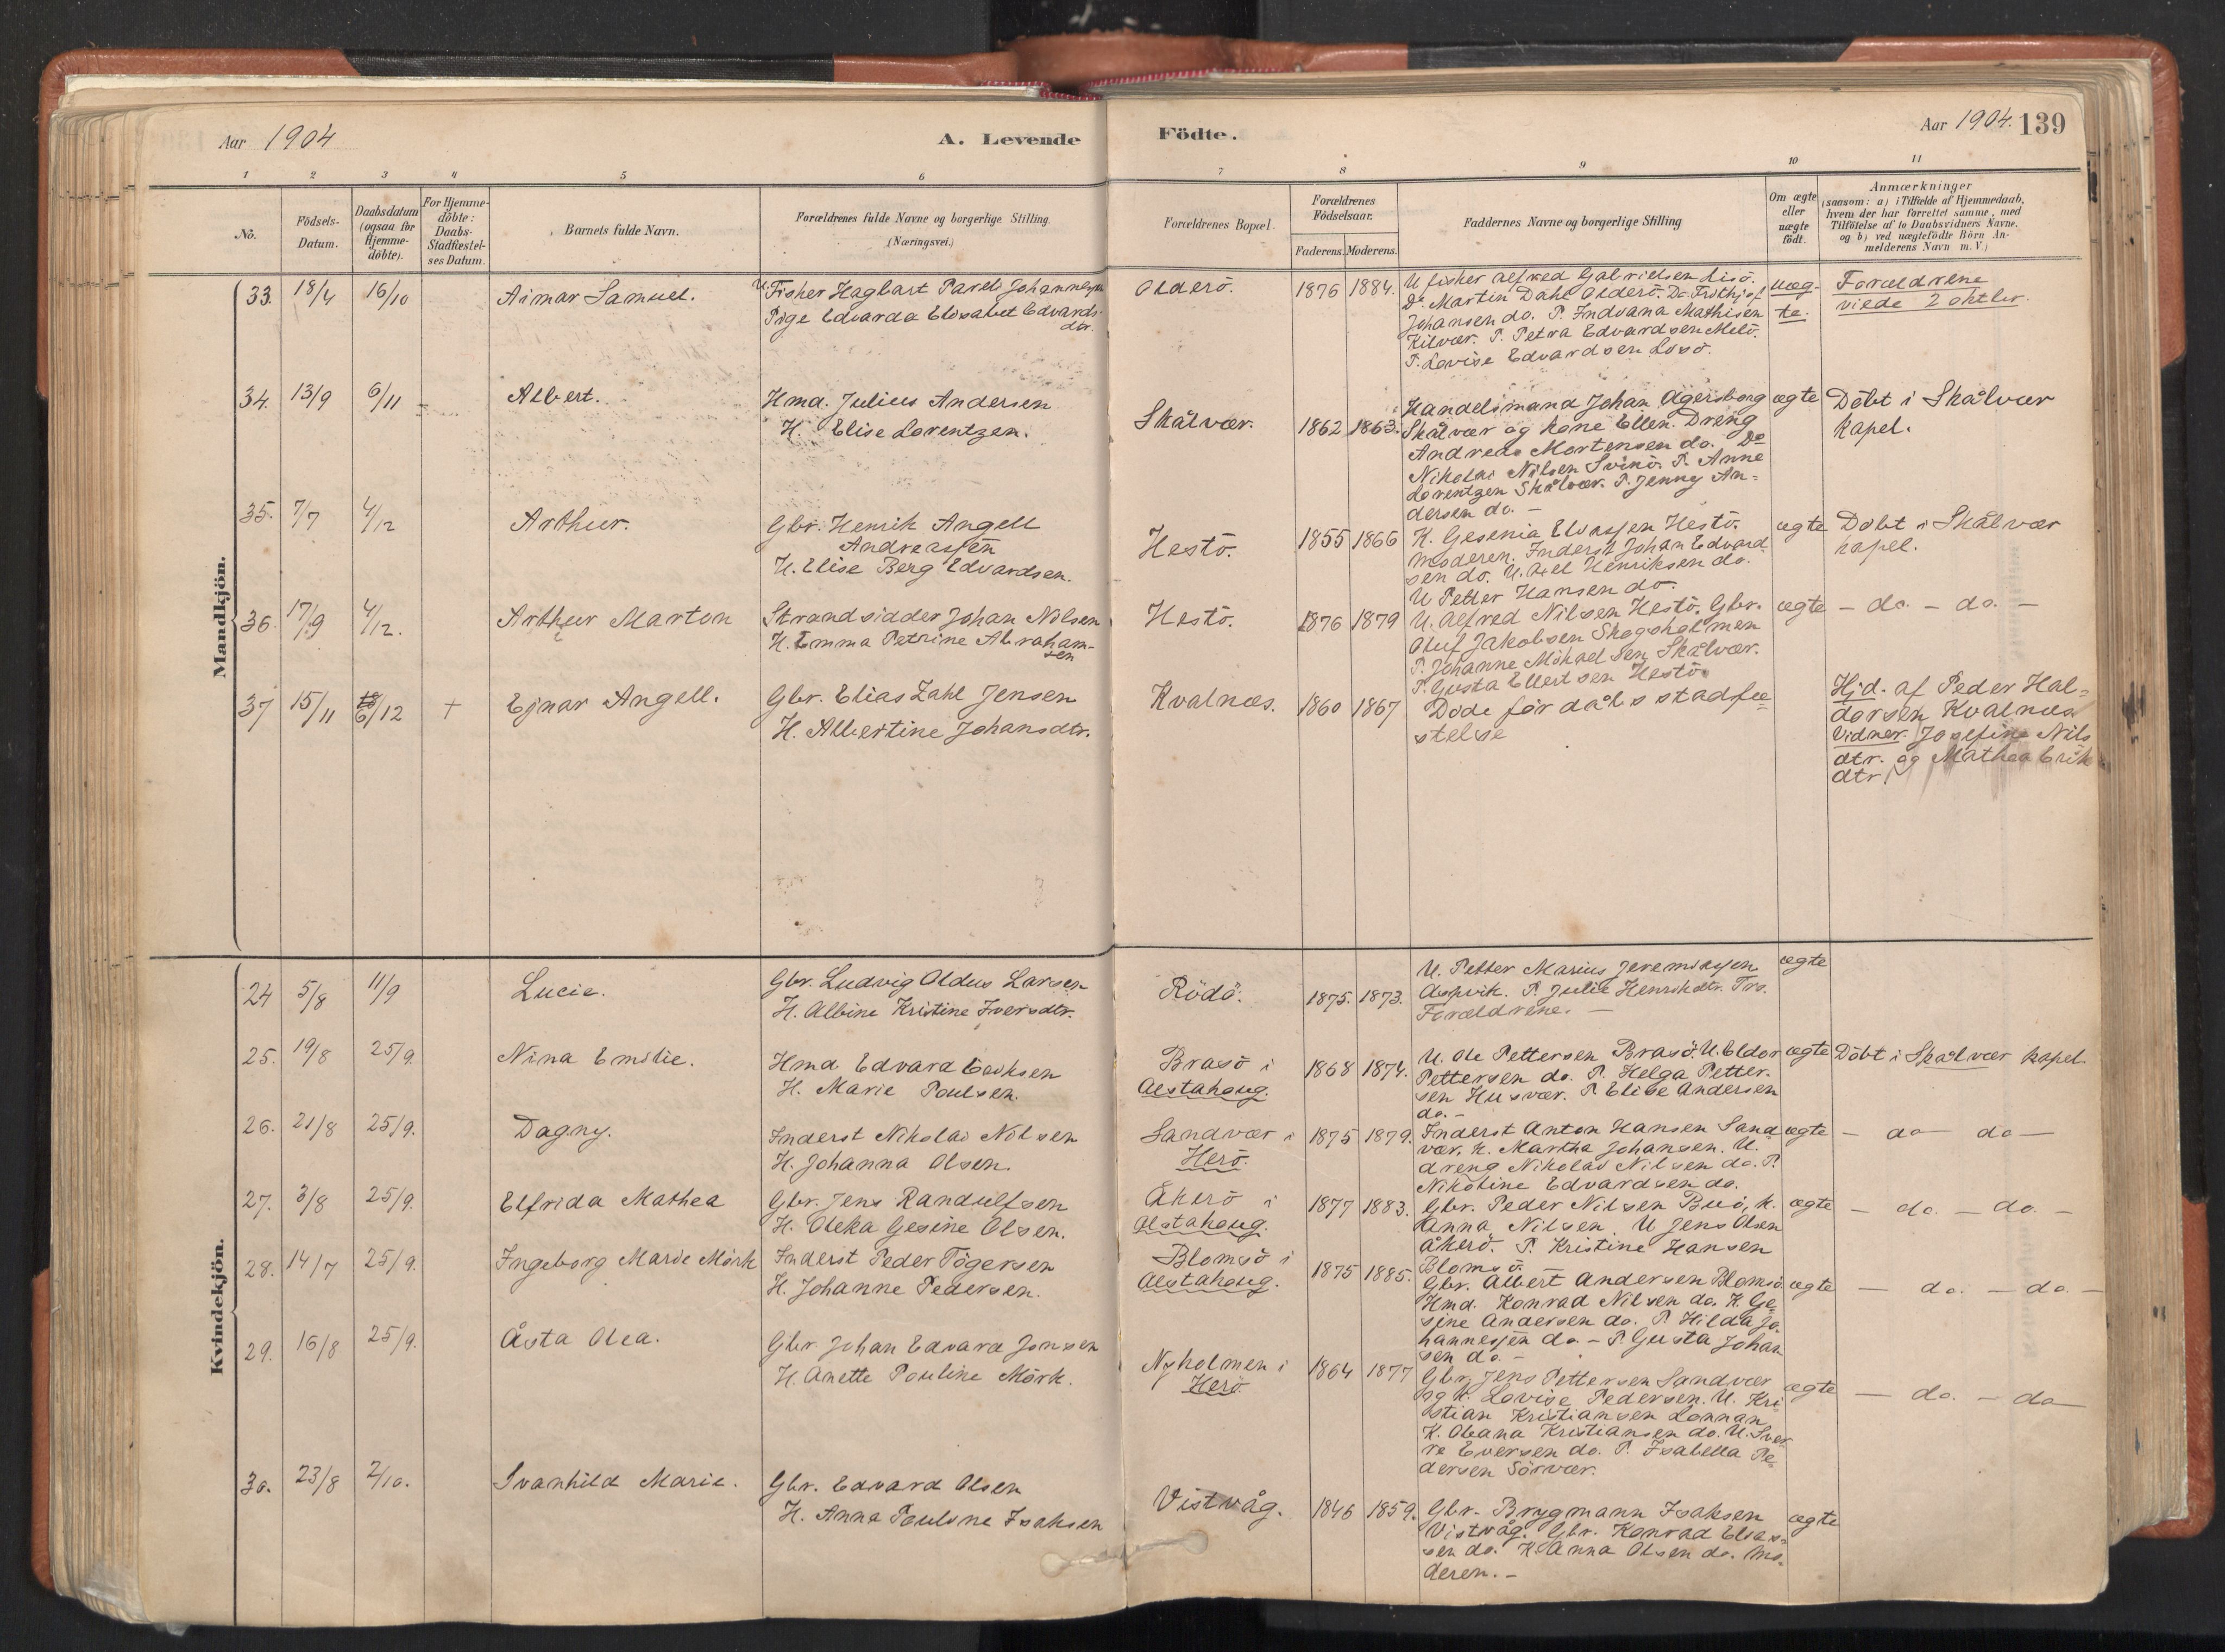 Aar 1904
A. Levende
Födte.
Aar 1904. 139
1 2 3 4 5 6 7 8 9 10 11
No.
Födsels-Datum.
Daabsdatum (ogsaa for Hjemme-döbte).
For Hjemme-döbte: Daabs-Stadfæstel-ses Datum.
Barnets fulde Navn.
Forældrenes fulde Navne og borgerlige Stilling.
(Næringsvei.)
Forældrenes Bopæl.
Forældrenes Födselsaar.
Faderens. Moderens.
Faddernes Navne og borgerlige Stilling
Om ægte eller uægte födt.
Anmærkninger
(saasom: a) i Tilfælde af Hjemmedaab,
hvem der har forrettet samme, med
Tilföielse af to Daabsvidners Navne.
og b) ved uægtefödte Börn An-
melderens Navn m. V.)
Mandkjön.
33. 18/4 16/10 Aimar Samuel.
U. Fisker Hagbart Pareli Johannesen
Pige Edvarda Elisabet Edvards-
dtr.
Olderö. 1876 1884.
U fisker Alfred Gabrielsen Lisö.
Do Martin Dahl Olderö. Do Frithjof
Johansen do. P. Indvana Mathisen
Kilvær. P. Petra Edvardsen Melö.
P. Lovise Edvardsen Losö.
uæg-
te.
Forældrene
viede 2 oktbr.
34. 13/9 6/11 Albert.
Hmd. Julius Andersen
H. Elise Lorentzen.
Skålvær. 1862 1863.
Handelsmand Johan Agersborg
Skålvær og kone Ellen. Dreng
Andreas Mortensen do. Do
Nikolai Nilsen Svinö. P. Anne
Lorentzen Skålvær. P. Jenny An-
dersen do. -
ægte
Döbt i Skålvær
kapel.
35. 7/7 4/12 Arthur.
Gbr. Henrik Angell
Andreassen
H. Elise Berg Edvardsen.
Hestö. 1855 1866
K. Gesenia Eliassen Hestö.
Moderen. Inderst Johan Edvard
sen do. U. Axel Henriksen do.
U Petter Hansen do.
ægte
Döbt i Skålvær
kapel.
36. 17/9 4/12. Arthur Marton
Strandsidder Johan Nilsen
H. Emma Petrine Abraham-
sen
Hestö. 1876 1879
U. Alfred Nilsen Hestö. Gbr.
Oluf Jakobsen Skogsholmen
P. Johanne Mikaelsen Skålvær.
P. Gusta Ellertsen Hestö.
ægte - do. - do. -
37 15/11 6/12 + Ejnar Angell.
Gbr. Elias Zahl Jensen
H. Albertine Johansdtr.
Kvalnæs. 1860 1867
Döde för dåbsstadfæ
stelse
Hjd. af Peder Hal-
dorsen Kvalnæs
Vidner. Josefine Nils
dtr. og Mathea Erik
dtr.
Kvindekjön.
24 5/8 11/9 Lucie.
Gbr. Ludvig Oldus Larsen
H. Albine Kristine Iversdtr.
Rödö. 1875. 1873.
U. Petter Marius Jeremiasen
Aspvik. P. Julie Henrikdtr. Tro.
Forældrene. -
ægte
25. 19/8 25/9. Nina Emilie.
Hmd Edvard Eriksen
H. Marie Poulsen.
Brasö i
Alstahaug.
1868 1874.
U. Ole Pettersen Brasö. U. Eldor
Pettersen do. P. Helga Petter-
sen Husvær. P. Elise Andersen
do. -
ægte Döbt i Skålvær kapel.
26. 21/8 25/9. Dagny.
Inderst Nikolai Nilsen
H. Johanna Olsen.
Sandvær i
Herö.
1875 1879.
Inderst Anton Hansen Sand
vær. K. Martha Johansen. U.
dreng Nikolai Nilsen do. P.
Nikoline Edvardsen do.
ægte - do do -
27. 3/8 25/9. Elfrida Mathea
Gbr. Jens Randulfsen
H. Oleka Gesine Olsen.
Åkerö i
Alstahaug.
1877 1883.
Gbr. Peder Nilsen Buö, K.
Anna Nilsen. U Jens Olsen
Åkerö. P. Kristine Hansen
Blomsö.
ægte - do. - do. -
28. 14/7 25/9. Ingeborg Marie Mörk
Inderst Peder Tögersen
H. Johanne Pedersen.
Blomsö i
Alstahaug.
1875 1885.
Gbr. Albert Andersen Blomsö
Hmd. Konrad Nilsen do. K. Ge-
sine Andersen do. P Hilda Jo-
hannessen do. - P. Gusta Johan
sen do. -
ægte - do. - do. -
29. 16/8 25/9. Åsta Olea.
Gbr. Johan Edvard Jonsen
H. Anette Pauline Mörk.
Nyholmen i
Herö
1864 1877
Gbr. Jens Pettersen Sandvær
og K. Lovise Pedersen. U. Kri
stian Kristiansen Lonnan
K. Oleana Kristiansen do. U. Sver
re Eversen do. P. Isabella Pe-
dersen Sörvær.
ægte - do. - do
30. 23/8 2/10. Svanhild Marie.
Gbr. Edvard Olsen
H. Anna Pauline Isaksen
Vistvåg. 1846 1859.
Gbr. Brygmann Isaksen
Vistvåg. Gbr. Konrad Elias-
sen do. K. Anna Olsen do. Mo-
deren. -
ægte